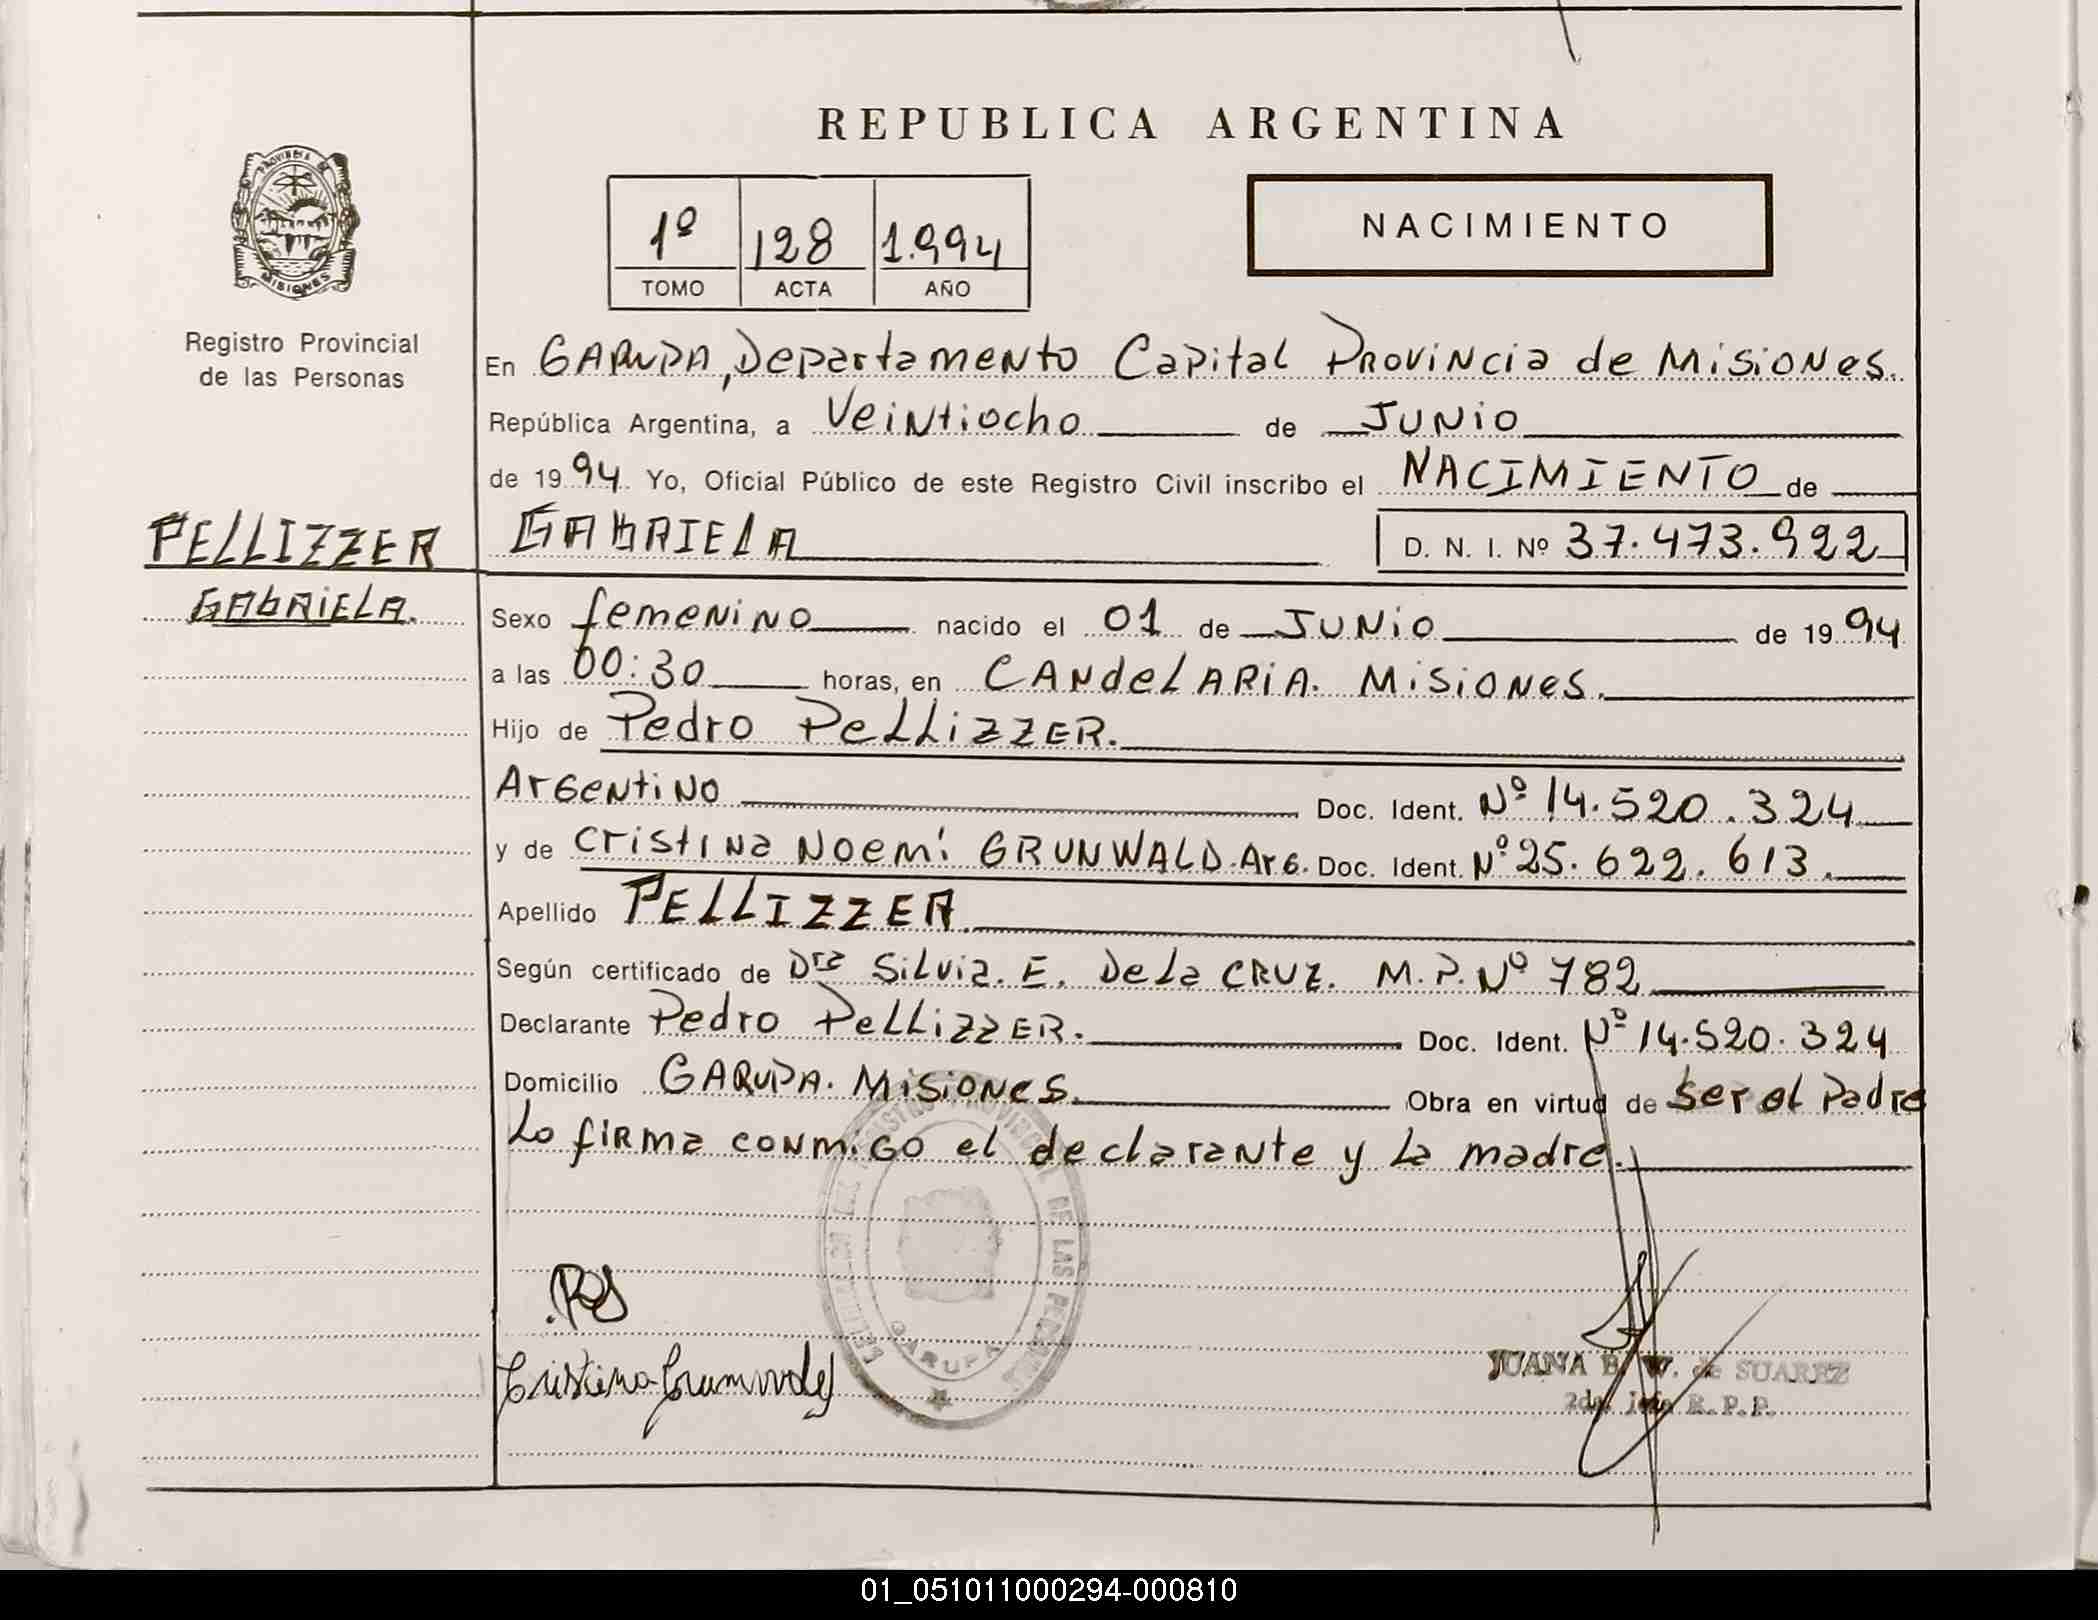 REPUBLICA ARGENTINA
PROVINCIA DE
MISIONES
Registro Provincial
de las Personas
1º 128 1.994
TOMO ACTA AÑO
NACIMIENTO
En GARUPA, Departamento Capital Provincia de Misiones.
República Argentina, a Veintiocho de JUNIO
de 1994. Yo, Oficial Público de este Registro Civil inscribo el NACIMIENTO de
PELLIZZER
GABRIELA.
GABRIELA D. N. I. Nº 37.473.922
Sexo femenino nacido el 01 de JUNIO de 1994
a las 00:30 horas, en CANDELARIA. Misiones.
Hijo de Pedro PELLIZZER.
Argentino Doc. Ident. Nº 14.520.324
y de Cristina Noemí GRUNWALD. Arg. Doc. Ident. Nº 25.622.613.
Apellido PELLIZZER
Según certificado de Dra Silvia. E. De La CRUZ. M.P. Nº 782
Declarante Pedro PELLIZZER. Doc. Ident. Nº 14.520.324
Domicilio GARUPA. Misiones. Obra en virtud de ser el Padre
Lo firma conmigo el declarante y la madre.
GARUPA
JUANA B. W. de SUAREZ
2da. Jefe R.P.P.
01_051011000294-000810